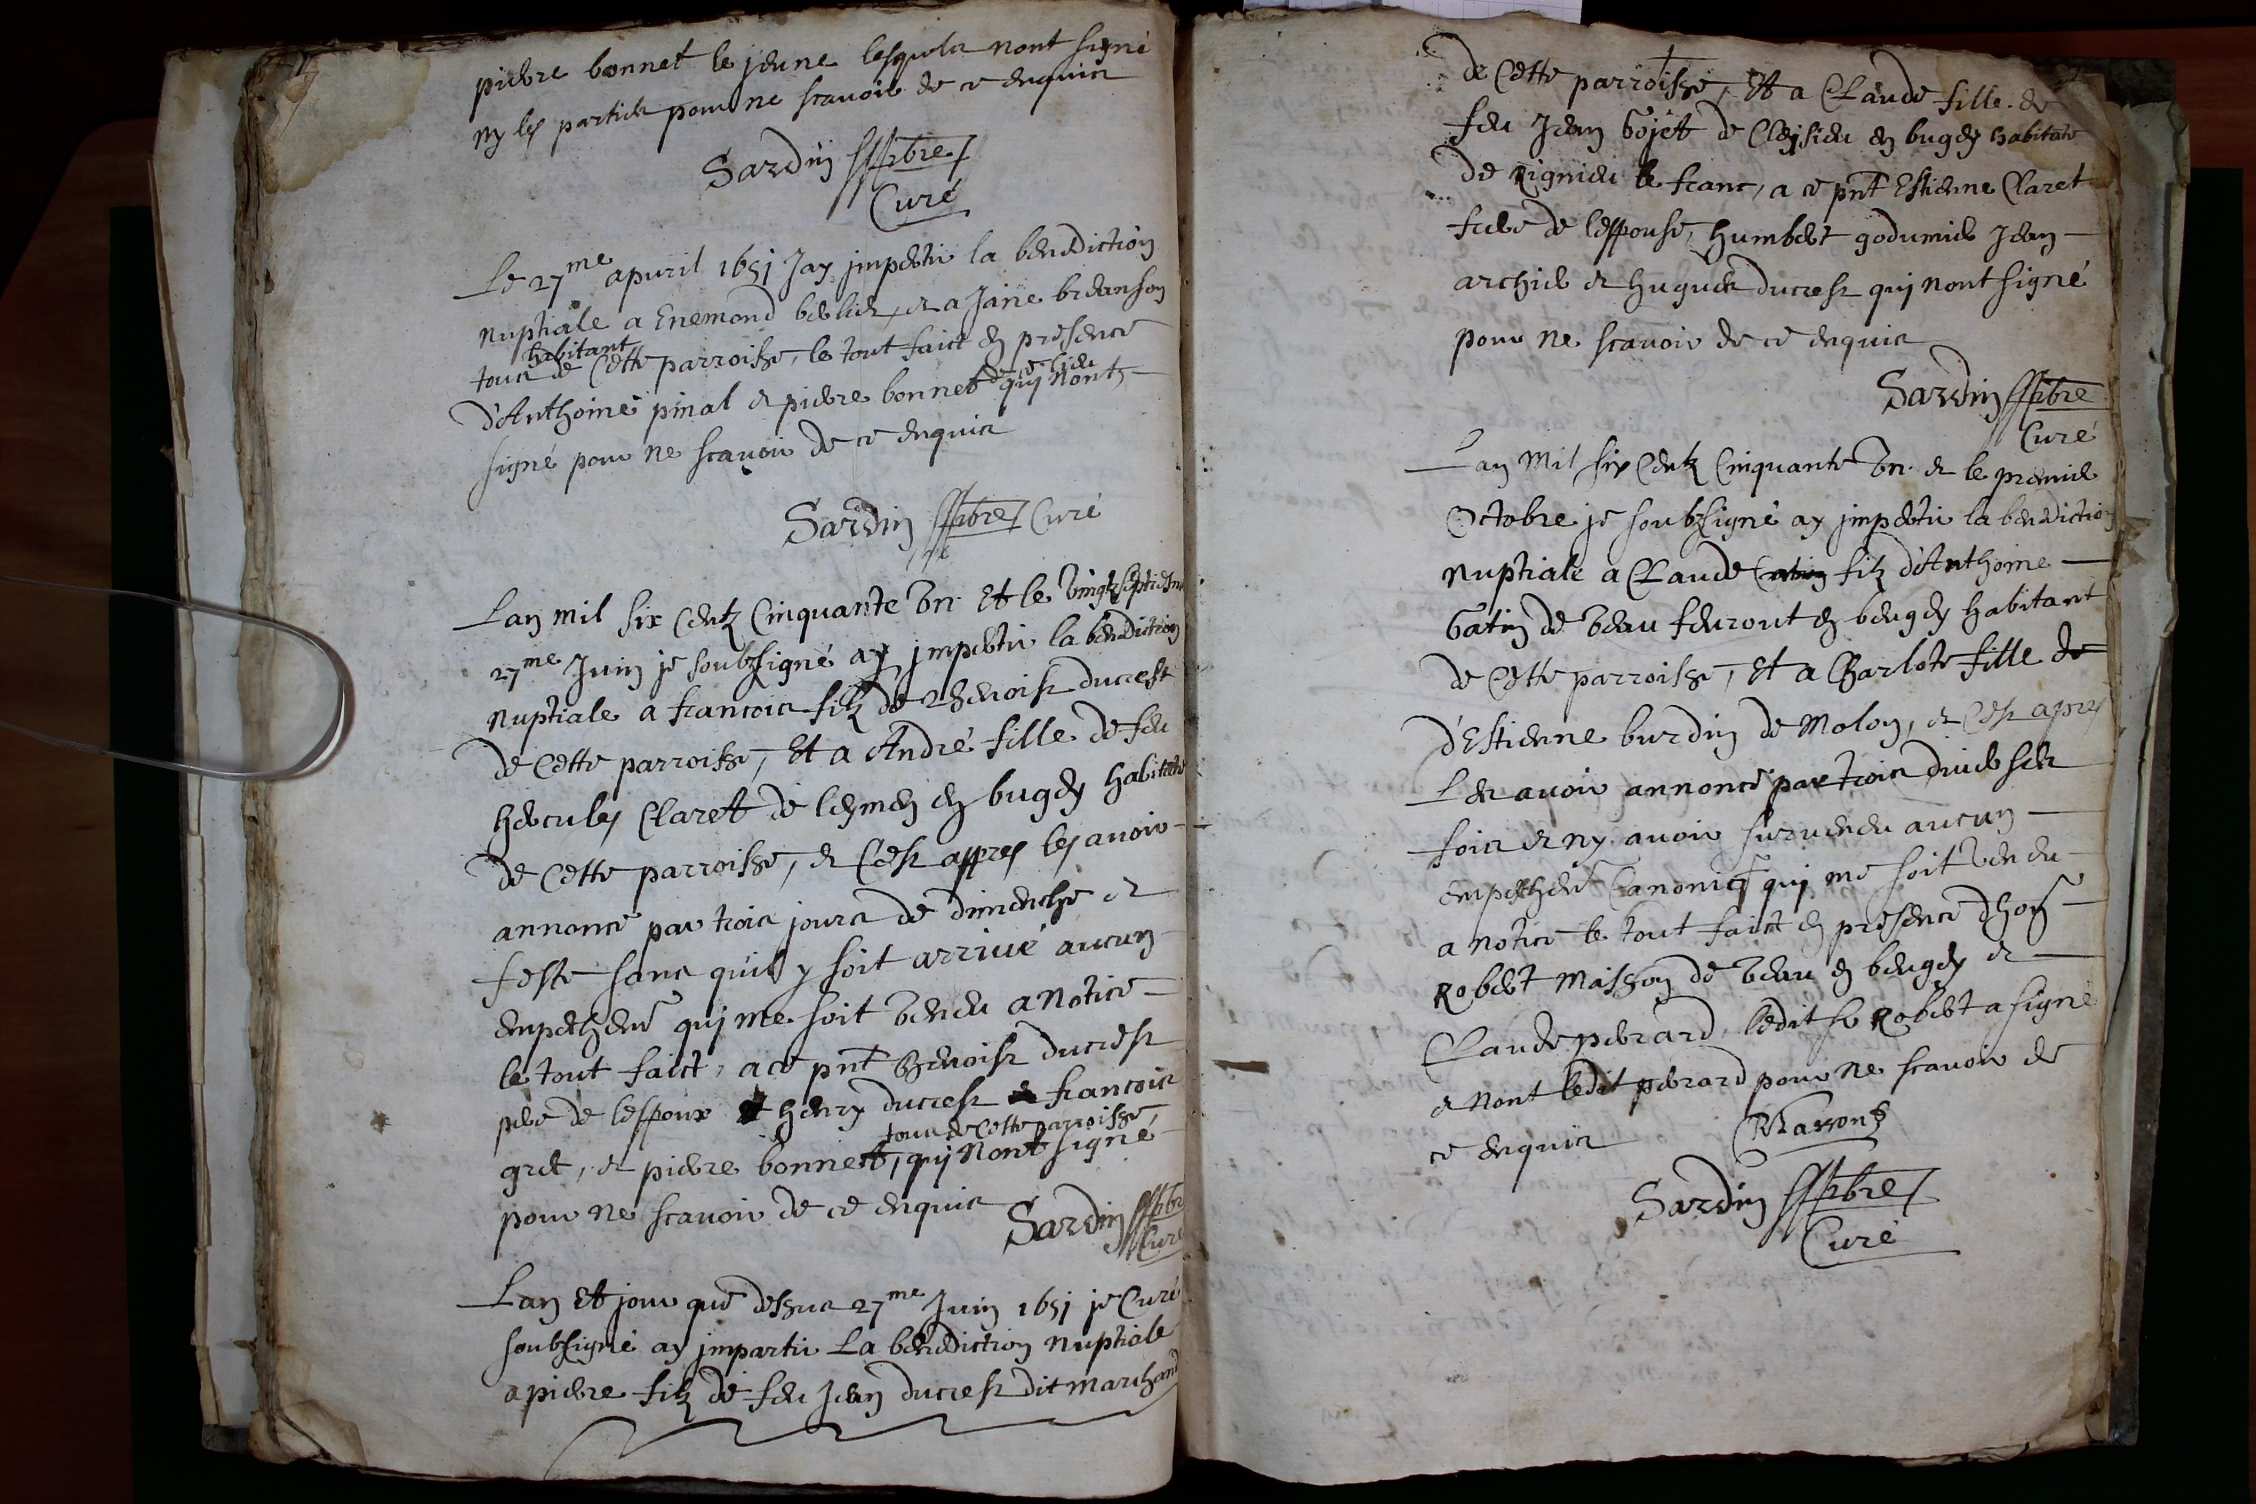 pierre bonnet le jeune lesquels nont signé
ny les parties pour ne scavoir de ce enquis
Sardin pbre
Curé
Le 27me apuril 1651 Jay jmpertir la benediction
nuptiale a Enemond berlier, et a Jane breanson
habitant
tous de Cette parroisse, le tout faict en presence
de ce lieu
d'Anthoine pinal et pierre bonnet qui nont
signé pour ne scavoir de ce enquis
Sardin pbre Curé
Lan mil six Centz Cinquante Un Et le Vingtseptiesme
27me Juin je soubzsigné ay jmpertir la benediction
nuptiale a francois filz de Benoist ducrest
de Cette parroisse, Et a André fille de feu
hercules Claret de leymen en bugey habitante
de Cette parroisse, et Cest appres les avoir
annoncé par trois jours de dimenche et
feste sans quil y soit arriué aucun
empechent qui me soit Venu a notice
le tout faict, a ce pnt Benoist ducrest
pere de lespoux et henry ducrest et francois
tous de Cette parroisse,
gret, et pierre bonnet, qui nont signé
pour ne scavoir de ce enquis
Sardin pbre
Curé
Lan Et jour que dessus 27me Juin 1651 je Curé
soubzsigné ay jmpartir La benediction nuptiale
a pierre filz de feu Jean ducrest dit marchand
de Cette parroisse, Et a Claude fille de
feu Jean Gojett de Cleysieu en bugey habitate
de Rignieu le franc, a ce pnt Estienne Claret
frere de lespouse, humbert godumier Jean
archier et hugues ducrest qui nont signé
pour ne scavoir de ce enquis
Sardin pbre
Curé
Lan mil six Centz Cinquante Un et le premier
Octobre je soubzsigné ay jmpertir la benediction
nuptiale a Claude filz d'Anthoine
Gatin de Veau feurout en beugey habitant
de Cette parroisse, Et a Charlote fille de
d'Estienne burdin de Molon, et Cest apres
Les avoir annoncé par trois diverses
fois et ny avoir survenu aucun
empechent Canoniq qui me soit Venu
a notice le tout faict en presence d'hon
Robert Masson de Veau en beugey et
Claude perard, ledit sr Robert a signé
et nont ledit perard pour ne scavoir de
ce enquis
RMasson
Sardin pbre
Curé